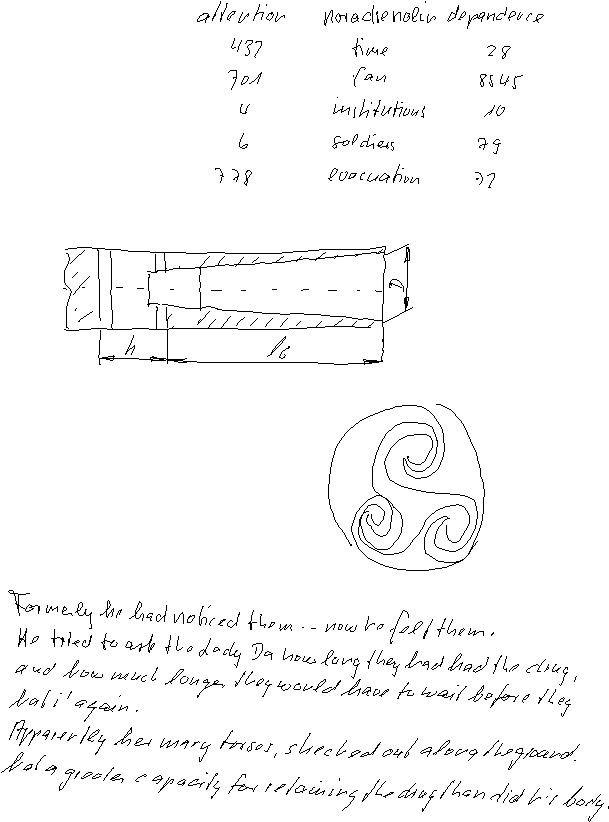 attention noradrenolin dependence
437 time 28
701 fan 8545
4 institutions 10
6 soldiers 79
778 evacuation 71
D
h l6
Formerly he had noticed them -- now he felt them.
He tried to ask the Lady Da how long they had had the drug,
and how much longer they would have to wait before they
had it again.
Apparently her many torsos, stretched out along the ground.
had a greater capacity for retaining the drug than did his body.